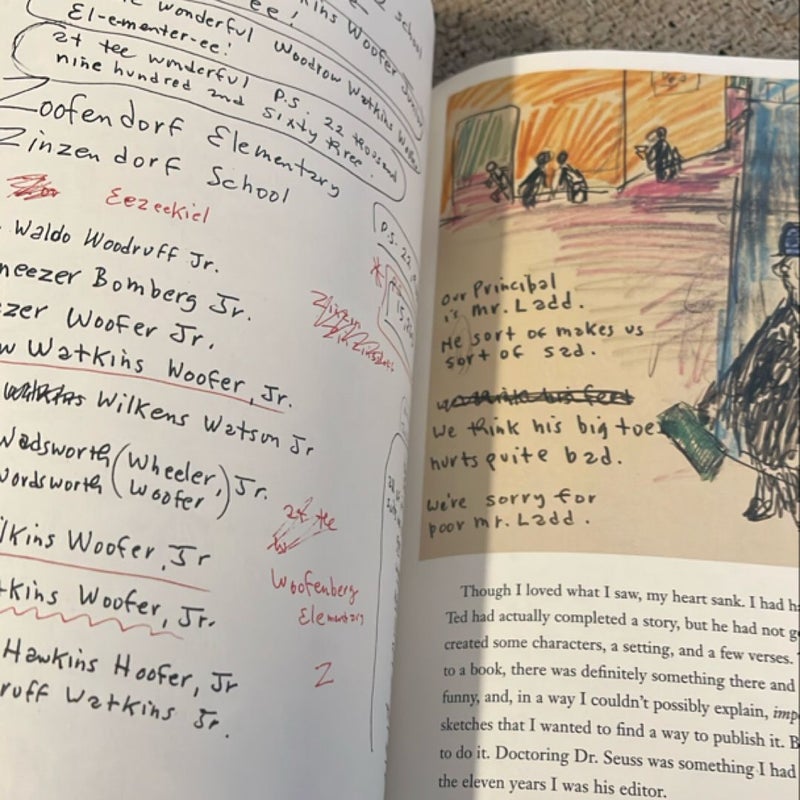 school
wonderful Woodrow Watkins Woofer
El-ementer-ee!
at tee wonderful P.S. 22 thousand
nine hundred and sixty three.
Zoofendorf Elementary
Zinzendorf School
Eezeekiel
Waldo Woodruff Jr.
neezer Bomberg Jr.
zer Woofer Jr.
w Watkins Woofer, Jr.
Wilkens Watson Jr
Wadsworth (Wheeler,) Jr.
Wordsworth (Woofer)
at tee
lkins Woofer, Jr
Woofenberg
Elementary
tkins Woofer, Jr.
Hawkins Hoofer, Jr
Z
ruff Watkins Jr.
our Principal
is mr. Ladd.
He sort of makes us
sort of sad.
we think his feet
We think his big toe
hurts quite bad.
we're sorry for
poor mr. Ladd.
Though I loved what I saw, my heart sank. I had h
Ted had actually completed a story, but he had not g
created some characters, a setting, and a few verses.
to a book, there was definitely something there and
funny, and, in a way I couldn't possibly explain, imp
sketches that I wanted to find a way to publish it. B
to do it. Doctoring Dr. Seuss was something I had
the eleven years I was his editor.